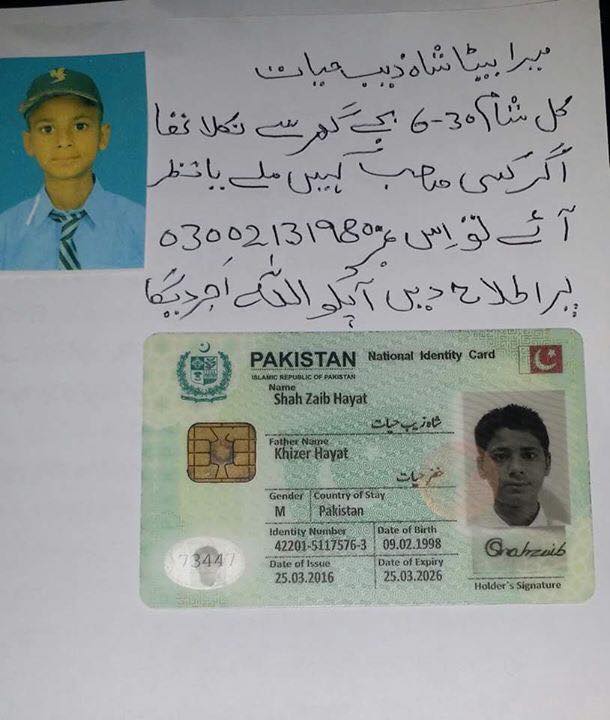 میرا بیٹا شاہ ذیب حیات
کل شام 6-30 بجے گھر سے نکلا تھا
اگر کسی صاحب کہیں ملے یا نظر
آئے تو اِس نمبر 03002131980
پر اطلاح دیں آپکو اللّٰہ اَجر دیگا
PAKISTAN National Identity Card
ISLAMIC REPUBLIC OF PAKISTAN
Name
Shah Zaib Hayat
شاہ زیب حیات
Father Name
Khizer Hayat
خضر حیات
Gender Country of Stay
M Pakistan
Identity Number Date of Birth
42201-5117576-3 09.02.1998
Date of Issue Date of Expiry
25.03.2016 25.03.2026
73447
Shahzaib
Holder's Signature